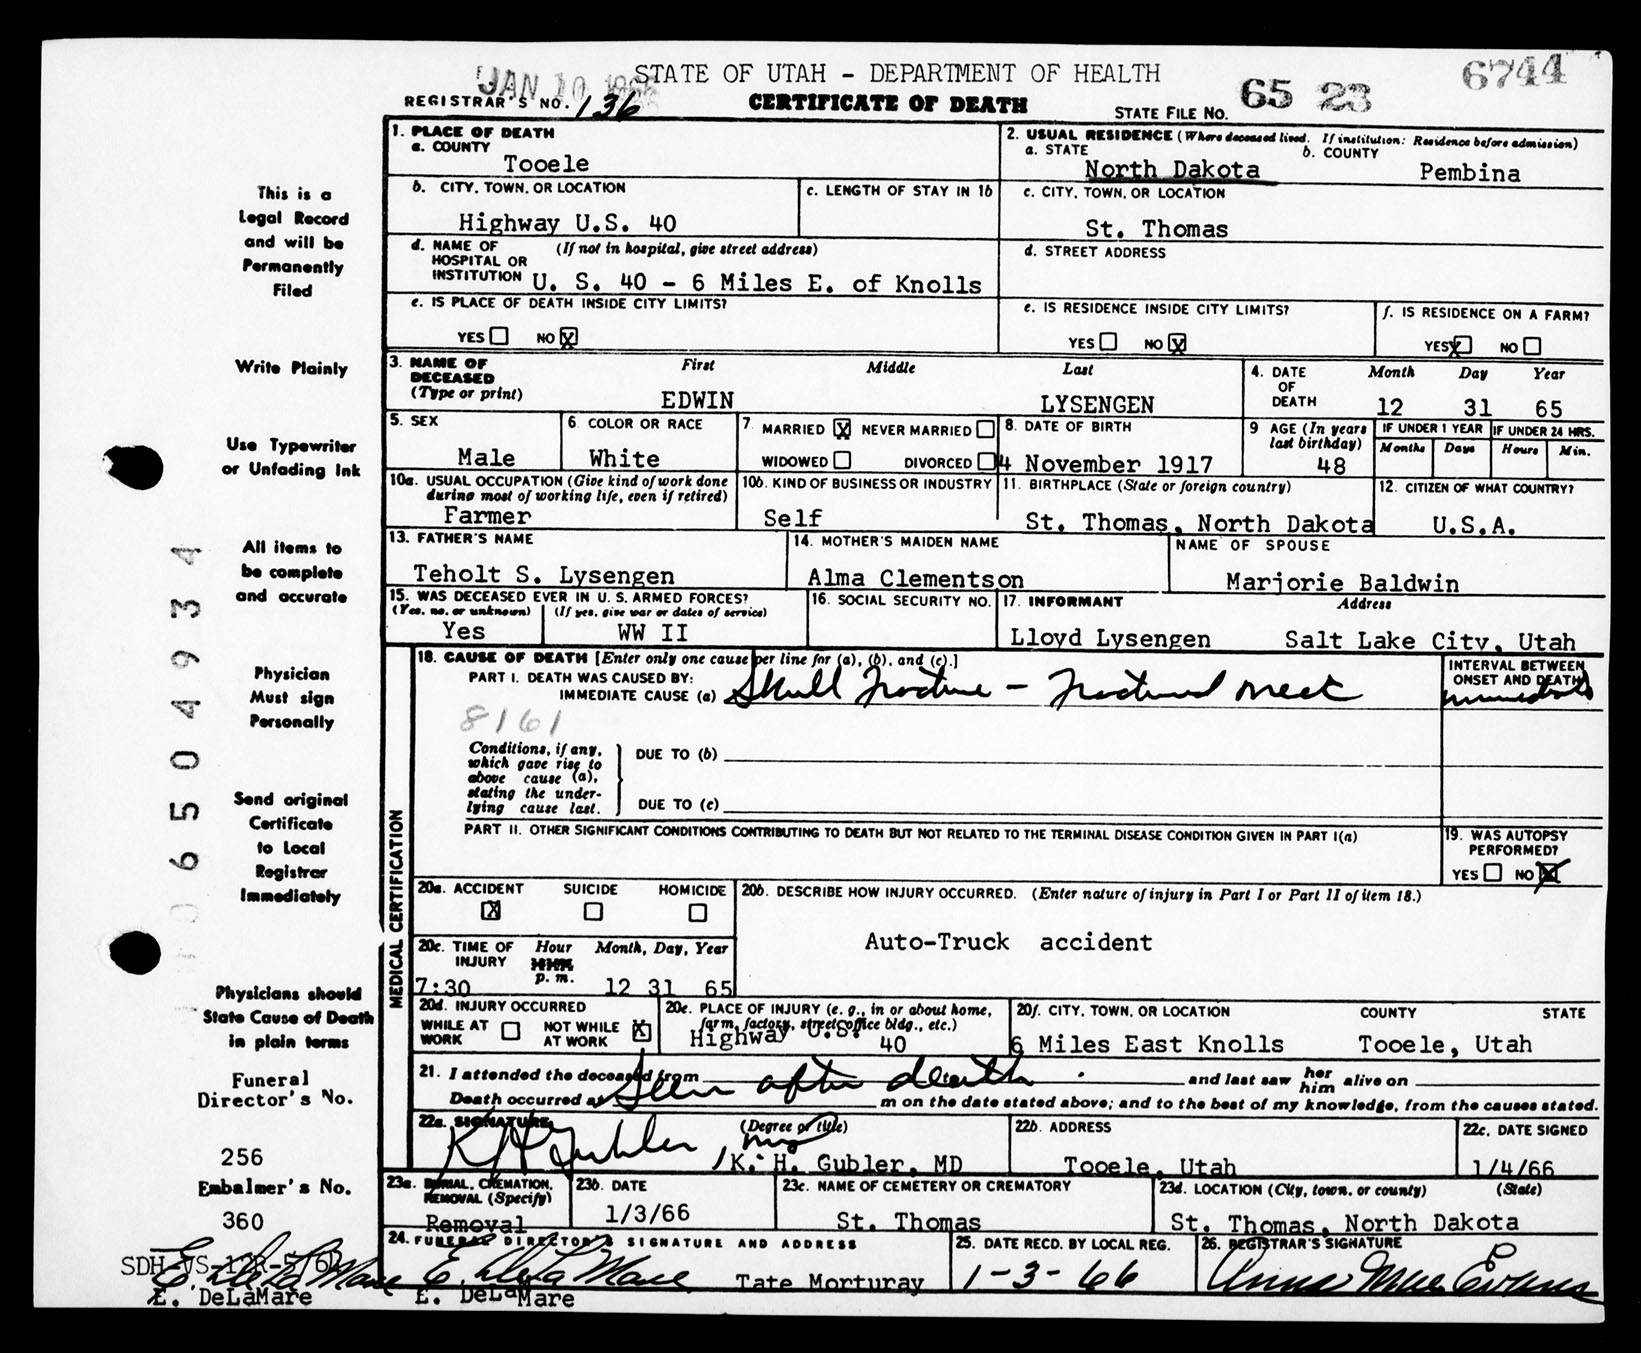 JAN 10 1966
STATE OF UTAH - DEPARTMENT OF HEALTH
6744
REGISTRAR'S NO. 136
CERTIFICATE OF DEATH
STATE FILE NO. 65 23
1. PLACE OF DEATH
a. COUNTY
Tooele
2. USUAL RESIDENCE (Where deceased lived. If institution: Residence before admission)
a. STATE
North Dakota
b. COUNTY
Pembina
b. CITY, TOWN, OR LOCATION
Highway U.S. 40
c. LENGTH OF STAY IN 1b
c. CITY, TOWN, OR LOCATION
St. Thomas
d. NAME OF (If not in hospital, give street address)
HOSPITAL OR
INSTITUTION U. S. 40 - 6 Miles E. of Knolls
d. STREET ADDRESS
e. IS PLACE OF DEATH INSIDE CITY LIMITS?
YES NO X
e. IS RESIDENCE INSIDE CITY LIMITS?
YES NO X
f. IS RESIDENCE ON A FARM?
YES X NO
3. NAME OF DECEASED (Type or print)
First Middle Last
EDWIN LYSENGEN
4. DATE OF DEATH
Month Day Year
12 31 65
5. SEX
Male
6. COLOR OR RACE
White
7. MARRIED X NEVER MARRIED
WIDOWED DIVORCED
8. DATE OF BIRTH
4 November 1917
9 AGE (In years last birthday)
48
IF UNDER 1 YEAR
Months Days
IF UNDER 24 HRS.
Hours Min.
10a. USUAL OCCUPATION (Give kind of work done
during most of working life, even if retired)
Farmer
10b. KIND OF BUSINESS OR INDUSTRY
Self
11. BIRTHPLACE (State or foreign country)
St. Thomas, North Dakota
12. CITIZEN OF WHAT COUNTRY?
U.S.A.
13. FATHER'S NAME
Teholt S. Lysengen
14. MOTHER'S MAIDEN NAME
Alma Clementson
NAME OF SPOUSE
Marjorie Baldwin
15. WAS DECEASED EVER IN U.S. ARMED FORCES?
(Yes, no, or unknown) (If yes, give war or dates of service)
Yes WW II
16. SOCIAL SECURITY NO.
17. INFORMANT Address
Lloyd Lysengen Salt Lake City, Utah
MEDICAL CERTIFICATION
18. CAUSE OF DEATH [Enter only one cause per line for (a), (b), and (c).]
PART I. DEATH WAS CAUSED BY:
IMMEDIATE CAUSE (a) Skull Fracture - Fractured Neck
INTERVAL BETWEEN
ONSET AND DEATH
immediate
8161
Conditions, if any,
which gave rise to
above cause (a),
stating the under-
lying cause last.
DUE TO (b)
DUE TO (c)
PART II. OTHER SIGNIFICANT CONDITIONS CONTRIBUTING TO DEATH BUT NOT RELATED TO THE TERMINAL DISEASE CONDITION GIVEN IN PART I(a)
19. WAS AUTOPSY
PERFORMED?
YES NO X
20a. ACCIDENT SUICIDE HOMICIDE
X
20b. DESCRIBE HOW INJURY OCCURRED. (Enter nature of injury in Part I or Part II of item 18.)
Auto-Truck accident
20c. TIME OF INJURY
Hour Month, Day, Year
p. m.
7:30 12 31 65
20d. INJURY OCCURRED
WHILE AT WORK NOT WHILE AT WORK X
20e. PLACE OF INJURY (e. g., in or about home,
farm, factory, street, office bldg., etc.)
Highway U.S. 40
20f. CITY, TOWN, OR LOCATION COUNTY STATE
6 Miles East Knolls Tooele, Utah
21. I attended the deceased from Seen after death and last saw her him alive on
Death occurred at m on the date stated above; and to the best of my knowledge, from the causes stated.
22a. SIGNATURE (Degree or title)
K H Gubler, MD
K. H. Gubler, MD
22b. ADDRESS
Tooele, Utah
22c. DATE SIGNED
1/4/66
23a. BURIAL, CREMATION,
REMOVAL (Specify)
Removal
23b. DATE
1/3/66
23c. NAME OF CEMETERY OR CREMATORY
St. Thomas
23d. LOCATION (City, town, or county) (State)
St. Thomas, North Dakota
24. FUNERAL DIRECTOR'S SIGNATURE AND ADDRESS
E. DeLaMare Tate Morturay
E. DeLaMare
25. DATE RECD. BY LOCAL REG.
1-3-66
26. REGISTRAR'S SIGNATURE
Anna Mae Evans
This is a
Legal Record
and will be
Permanently
Filed
Write Plainly
Use Typewriter
or Unfading Ink
All items to
be complete
and accurate
Physician
Must sign
Personally
Send original
Certificate
to Local
Registrar
Immediately
Physicians should
State Cause of Death
in plain terms
Funeral
Director's No.
256
Embalmer's No.
360
SDH-VS-12R-5/64
E. DeLaMare
E. DeLaMare
06504934